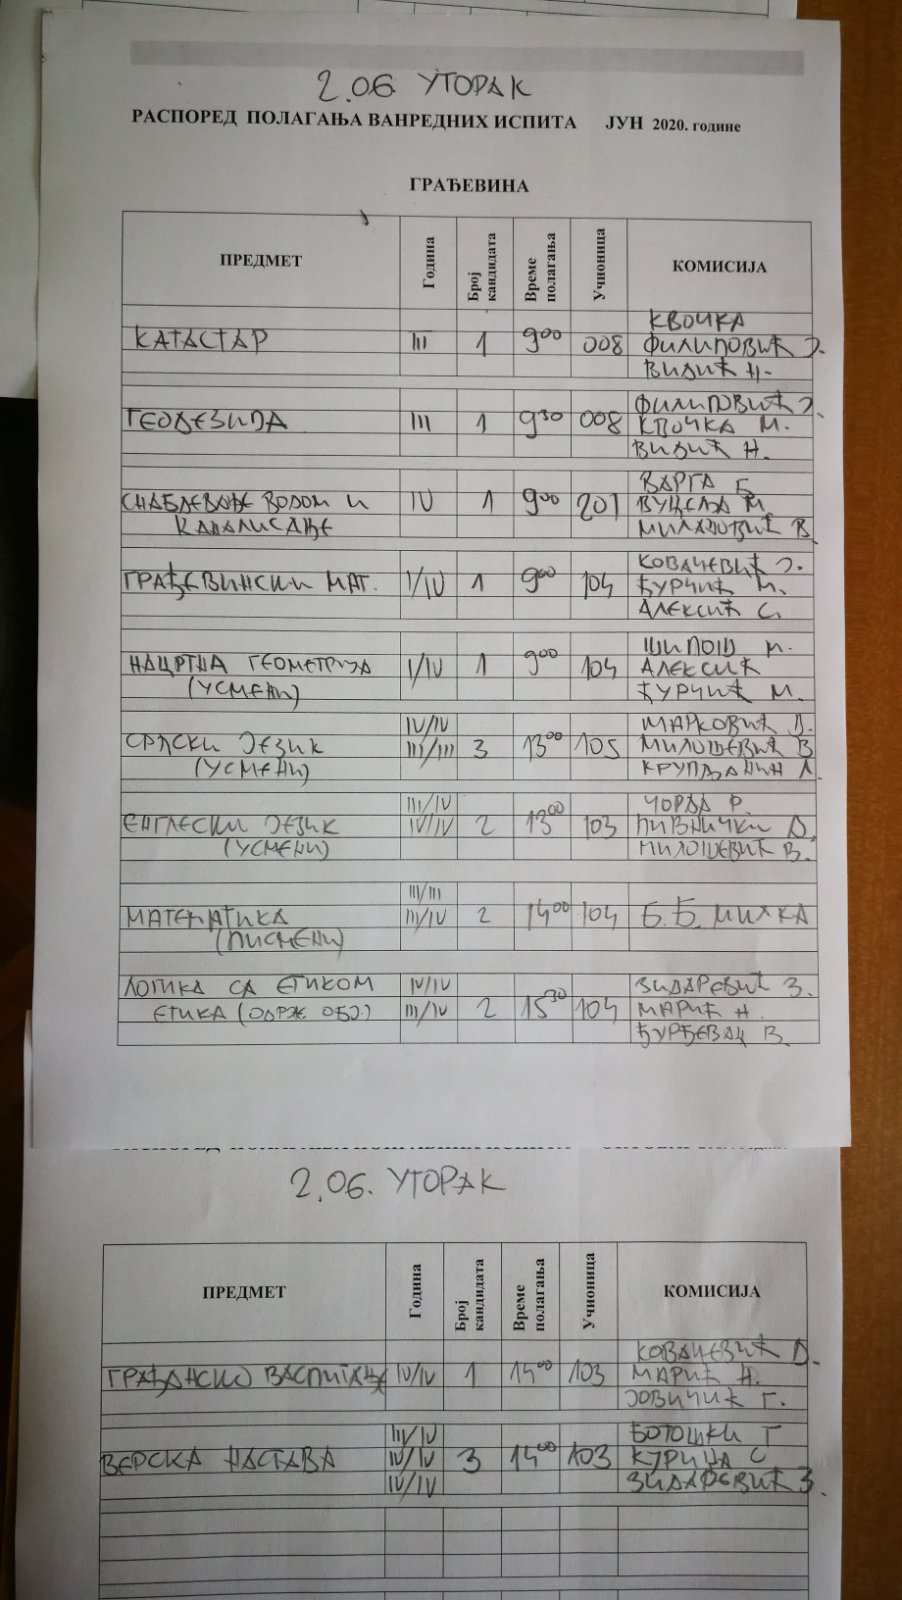 2.06 УТОРАК
РАСПОРЕД ПОЛАГАЊА ВАНРЕДНИХ ИСПИТА ЈУН 2020. године
ГРАЂЕВИНА
ПРЕДМЕТ Година Број кандидата Време полагања Учионица КОМИСИЈА
КВОЧКА
КАТАСТАР III 1 9⁰⁰ 008 ФИЛИПОВИЋ Ј.
ВИДИЋ Н.
ФИЛИПОВИЋ Ј.
ГЕОДЕЗИЈА III 1 9³⁰ 008 КВОЧКА М.
ВИДИЋ Н.
ВАРГА Б
СНАБДЕВАЊЕ ВОДОМ И IV 1 9⁰⁰ 201 ВУЦЕЉА М.
КАНАЛИСАЊЕ МИЛАДОВИЋ В.
КОВАЧЕВИЋ Ј.
ГРАЂЕВИНСКИ МАТ. I/IV 1 9⁰⁰ 104 ЂУРЧИЋ М.
АЛЕКСИЋ С.
ШИПОШ М.
НАЦРТНА ГЕОМЕТРИЈА I/IV 1 9⁰⁰ 104 АЛЕКСИЋ
(УСМЕНИ) ЂУРЧИЋ М.
IV/IV МАРКОВИЋ Д.
СРПСКИ ЈЕЗИК III/III 3 13⁰⁰ 105 МИЛОШЕВИЋ В
(УСМЕНИ) КРУПЉАНИН Л.
III/IV ЧОРДА Р.
ЕНГЛЕСКИ ЈЕЗИК IV/IV 2 13⁰⁰ 103 ПИВНИЧКИ Д.
(УСМЕНИ) МИЛОШЕВИЋ В.
III/III
МАТЕМАТИКА III/IV 2 14⁰⁰ 104 Б.Б. МИЛКА
(ПИСМЕНИ)
ЛОГИКА СА ЕТИКОМ IV/IV ЗИДАРЕВИЋ З.
ЕТИКА (ОДРЖ. ОБЈ.) III/IV 2 15³⁰ 104 МАРИЋ Н.
ЂУРЂЕВАЦ В.
2.06. УТОРАК
ПРЕДМЕТ Година Број кандидата Време полагања Учионица КОМИСИЈА
КОВАЧЕВИЋ Д.
ГРАЂАНСКО ВАСПИТАЊЕ IV/IV 1 14⁰⁰ 103 МАРИЋ Н.
ЈОВИЧИЋ Г.
III/IV БОТОШКИ Г
ВЕРСКА НАСТАВА IV/IV 3 14⁰⁰ 103 КУРИЦА С
IV/IV ЗИДАРЕВИЋ З.